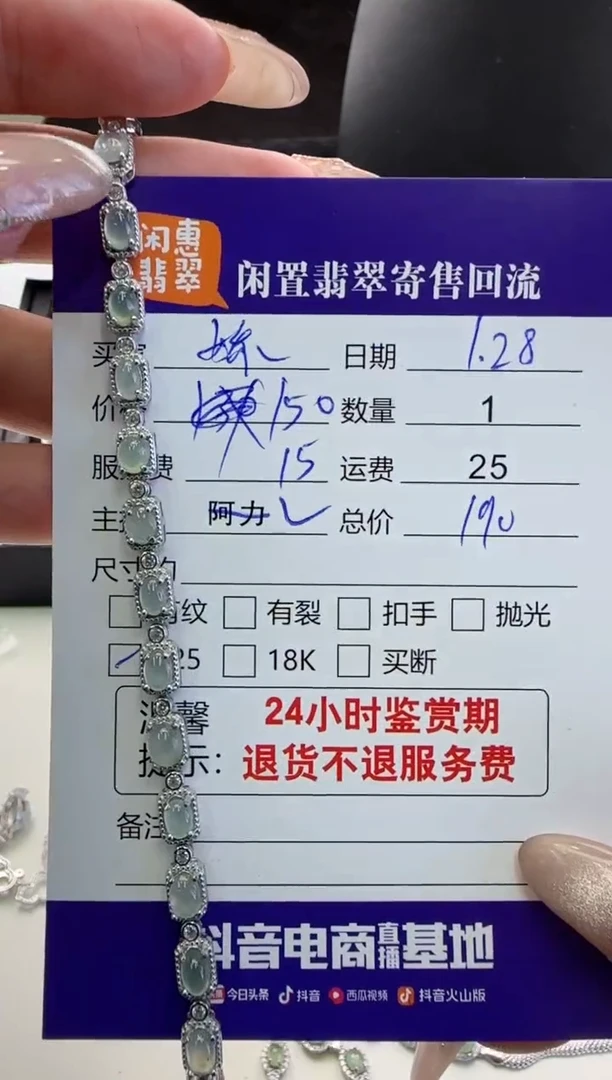 闲惠
翡翠
闲置翡翠寄售回流
买 日期 1.28
价 150 数量 1
服 费 15 运费 25
主 阿力 总价 190
尺寸
有纹 有裂 扣手 抛光
25 18K 买断
温馨 24小时鉴赏期
提示：退货不退服务费
备注
抖音电商直播基地
今日头条 抖音 西瓜视频 抖音火山版